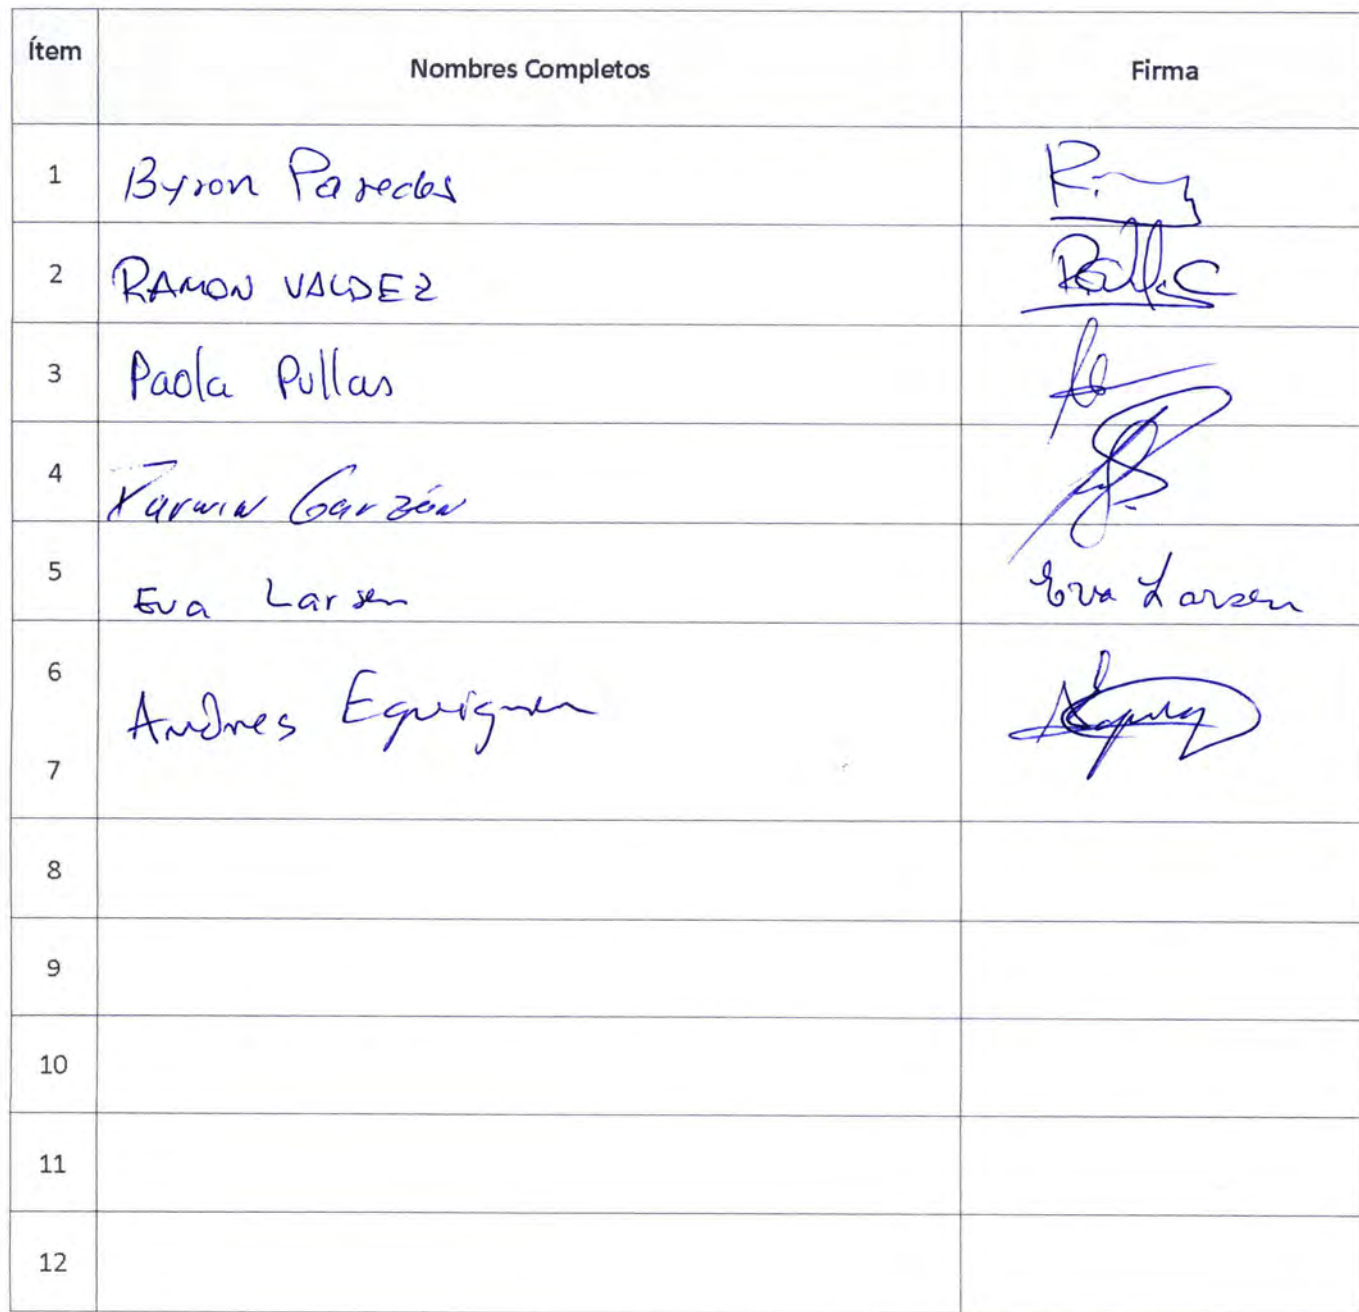 Ítem Nombres Completos Firma
1 Byron Paredes
2 RAMON VALDEZ
3 Paola Pullas
4 Darwin Garzón
5 Eva Larsen Eva Larsen
6 Andres Eguiguren
7
8
9
10
11
12